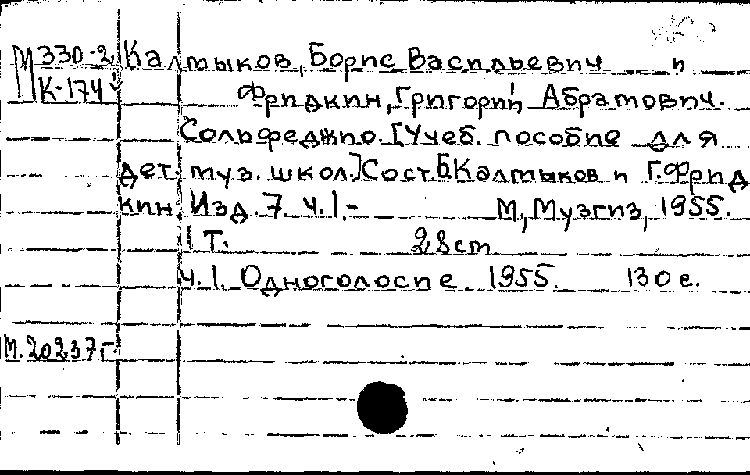 М 330-2 Калмыков, Борис Васильевич и
К-174 Фридкин, Григорий Абрамович.
Сольфеджио. [Учеб. пособие для
дет. муз. школ.] Сост. Б. Калмыков и Г. Фрид
кин. Изд. 7. ч. 1.- М, Музгиз, 1955.
1 т. 28 cm
ч. 1. Одноголосие 1955. 130 с.
М. 20237 г.